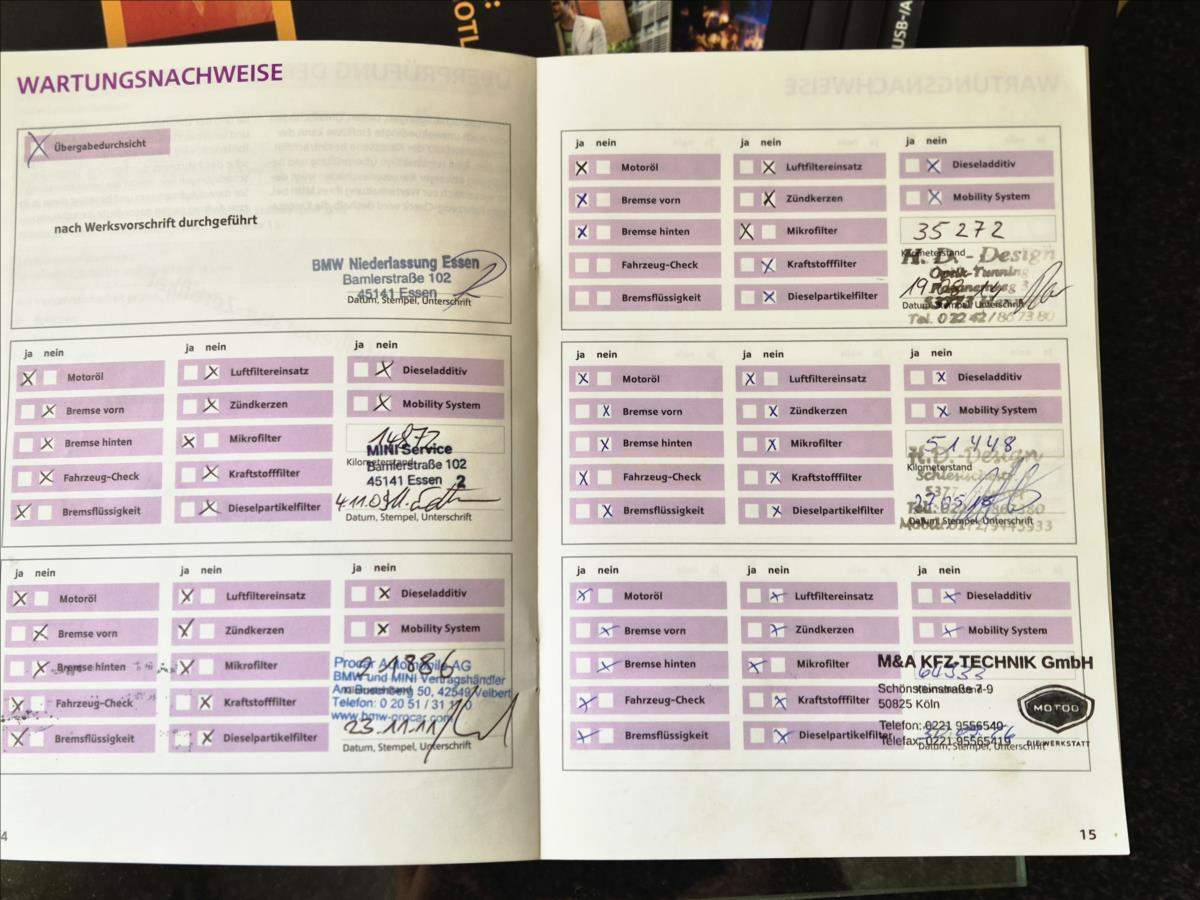 WARTUNGSNACHWEISE
Übergabedurchsicht
nach Werksvorschrift durchgeführt
BMW Niederlassung Essen
Bamlerstraße 102
45141 Essen
Datum, Stempel, Unterschrift
ja nein
ja nein
ja nein
Motoröl
Luftfiltereinsatz
Dieseladditiv
Bremse vorn
Zündkerzen
Mobility System
Bremse hinten
Mikrofilter
14872
Kilometerstand
Fahrzeug-Check
Kraftstofffilter
MINI Service
Bamlerstraße 102
45141 Essen 2
Bremsflüssigkeit
Dieselpartikelfilter
Datum, Stempel, Unterschrift
ja nein
ja nein
ja nein
Motoröl
Luftfiltereinsatz
Dieseladditiv
Bremse vorn
Zündkerzen
Mobility System
Bremse hinten
Mikrofilter
21886
Fahrzeug-Check
Kraftstofffilter
Procar Automobile AG
BMW und MINI Vertragshändler
Am Buschberg 50, 42549 Velbert
Telefon: 0 20 51 / 31
www.bmw-procar.com
Bremsflüssigkeit
Dieselpartikelfilter
23.11.11
Datum, Stempel, Unterschrift
4
ja nein
ja nein
ja nein
Motoröl
Luftfiltereinsatz
Dieseladditiv
Bremse vorn
Zündkerzen
Mobility System
Bremse hinten
Mikrofilter
35272
Kilometerstand
Fahrzeug-Check
Kraftstofffilter
H.D.-Design
Optik-Tunning
Bremsflüssigkeit
Dieselpartikelfilter
Datum, Stempel, Unterschrift
Tel. 0 22 42 / 86 73 80
ja nein
ja nein
ja nein
Motoröl
Luftfiltereinsatz
Dieseladditiv
Bremse vorn
Zündkerzen
Mobility System
Bremse hinten
Mikrofilter
51448
Kilometerstand
Fahrzeug-Check
Kraftstofffilter
H.D.-Design
Bremsflüssigkeit
Dieselpartikelfilter
Datum, Stempel, Unterschrift
ja nein
ja nein
ja nein
Motoröl
Luftfiltereinsatz
Dieseladditiv
Bremse vorn
Zündkerzen
Mobility System
Bremse hinten
Mikrofilter
M&A KFZ-TECHNIK GmbH
Fahrzeug-Check
Kraftstofffilter
Schönsteinstraße 7-9
50825 Köln
MOTOO
DIE WERKSTATT
Bremsflüssigkeit
Dieselpartikelfilter
Telefon: 0221 9556540
Telefax: 0221 95565419
Datum, Stempel, Unterschrift
15